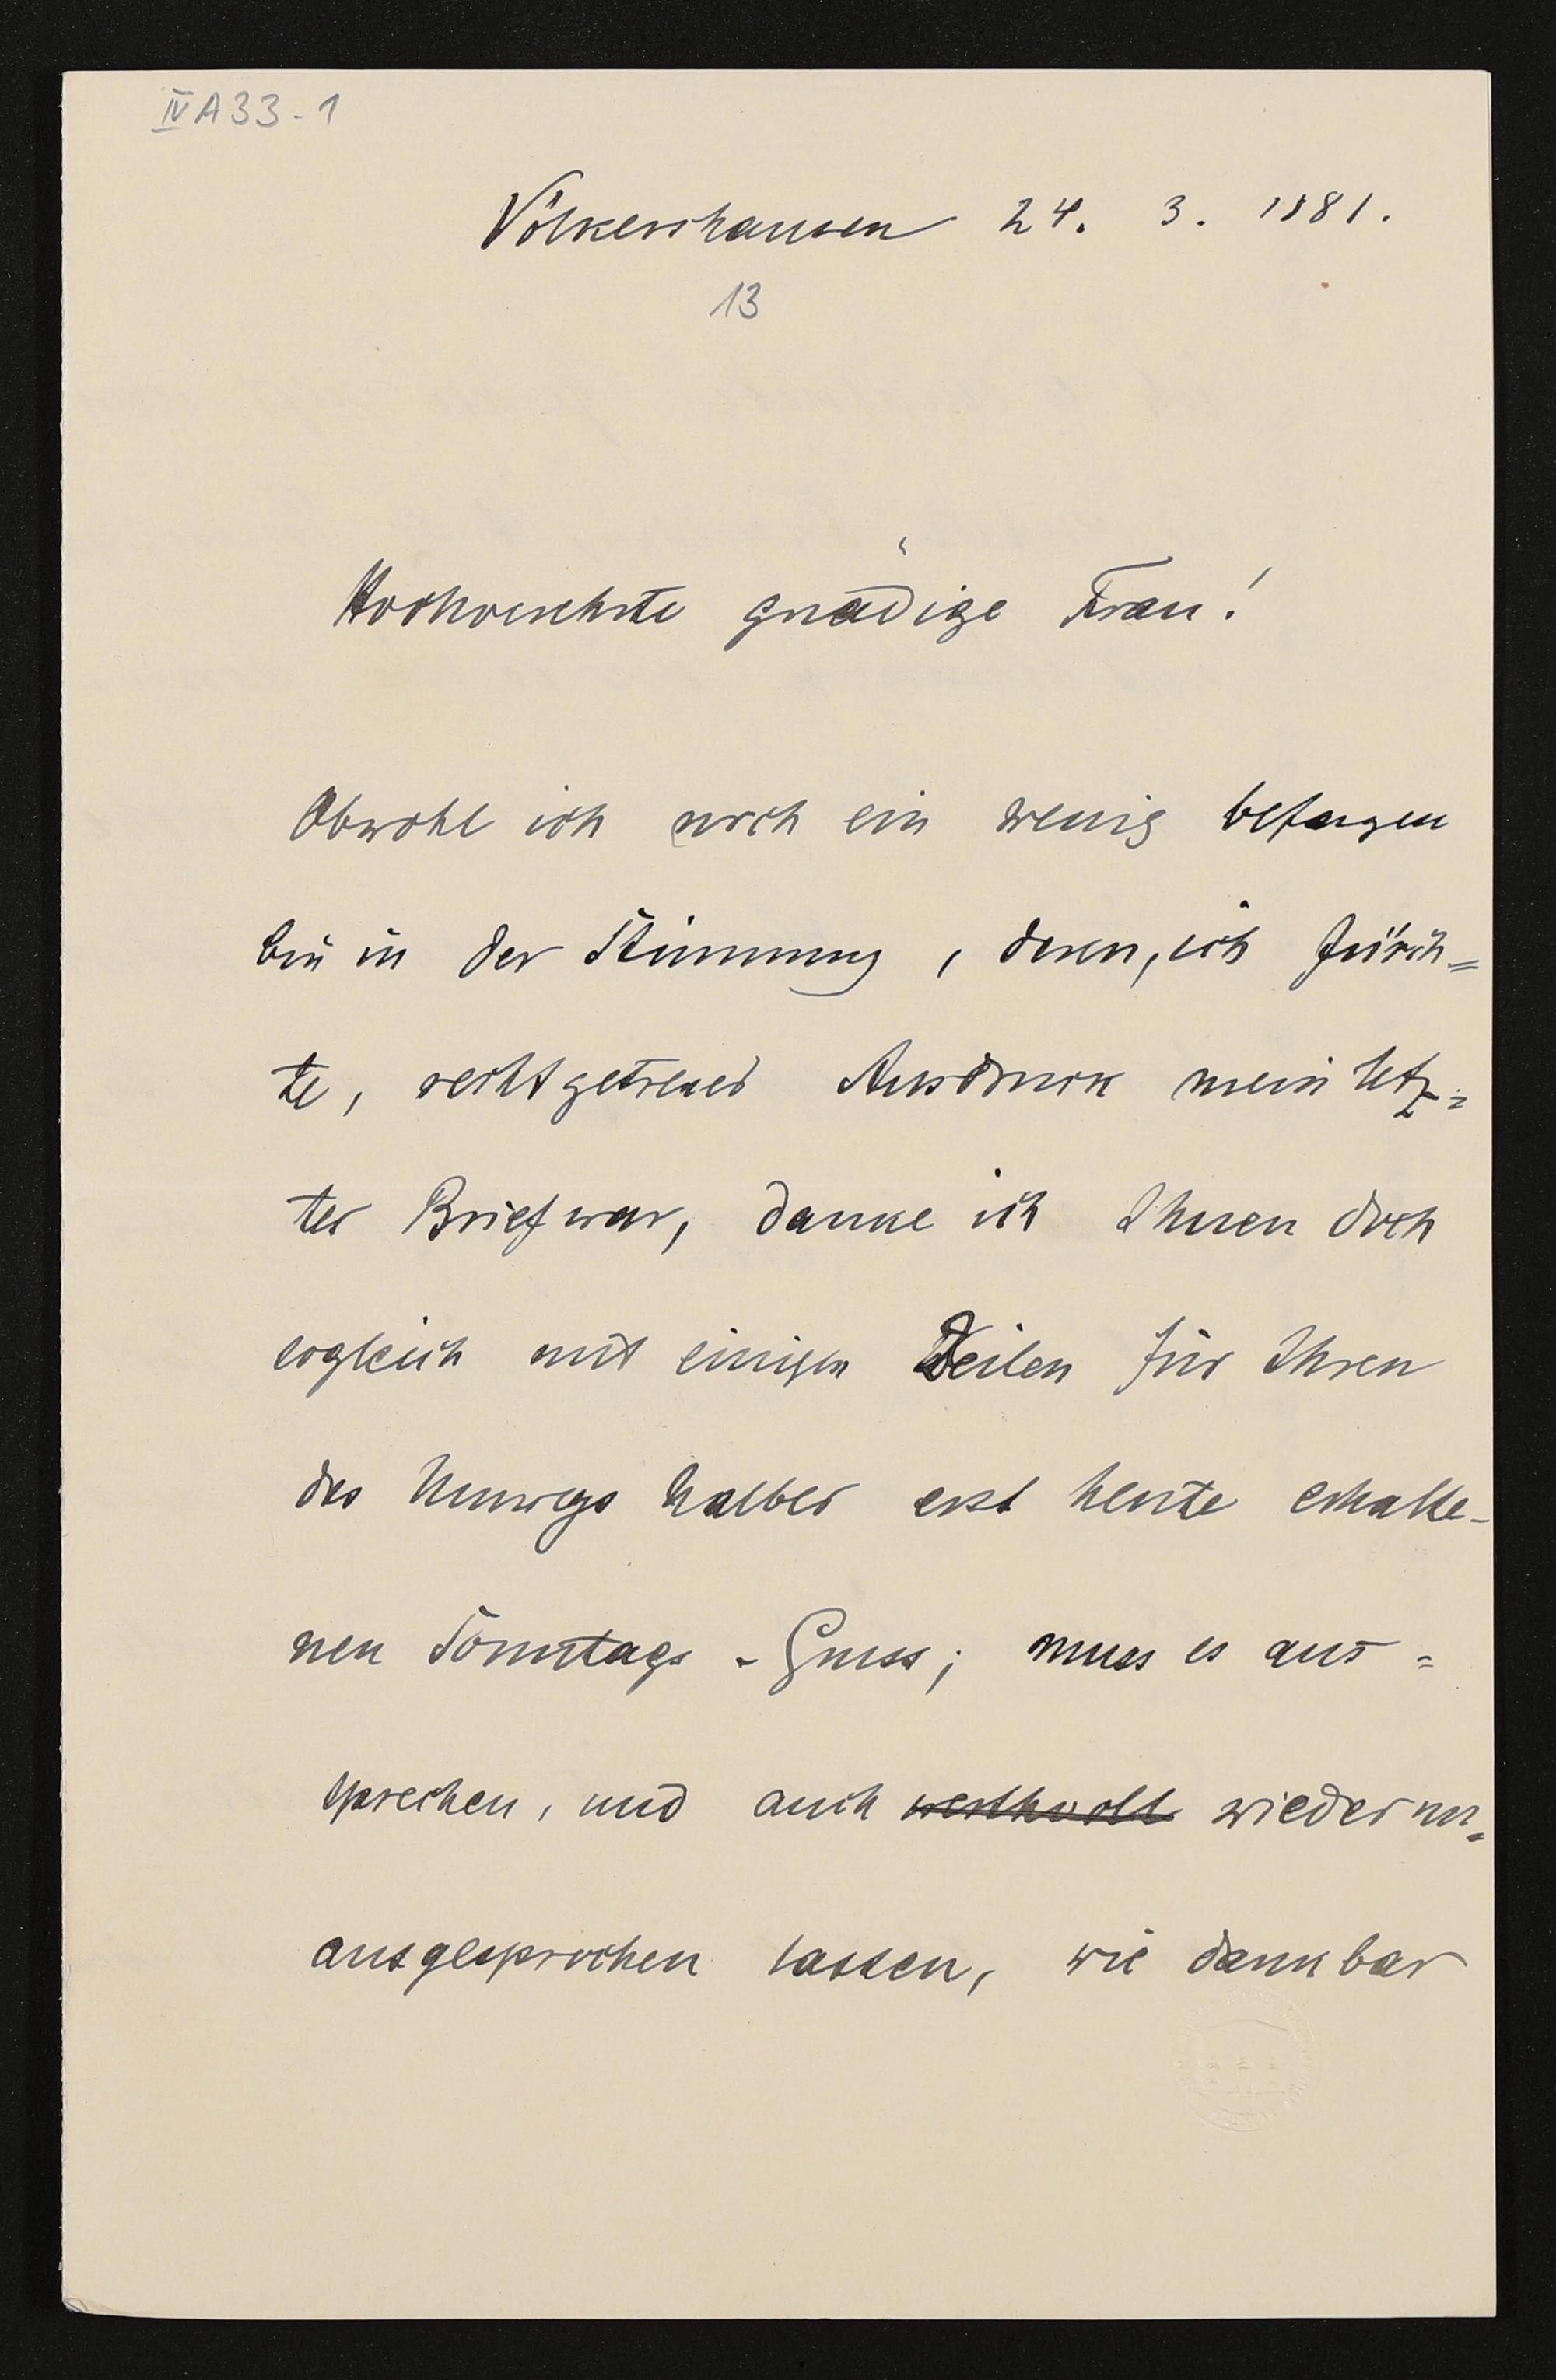 IV A 33 - 1
Völkershausen 24. 3. 1881.
13
Hochverehrte gnädige Frau!
Obwohl ich noch ein wenig befangen
bin in der Stimmung, deren, ich fürch=
te, recht getreuer Ausdruck mein letz=
ter Brief war, danke ich Ihnen doch
sogleich mit einigen Zeilen für Ihren
des Umwegs halber erst heute erhalte-
nen Sonntags - Gruss; muss es aus=
sprechen, und auch werthvoll wieder un=
ausgesprochen lassen, wie dankbar